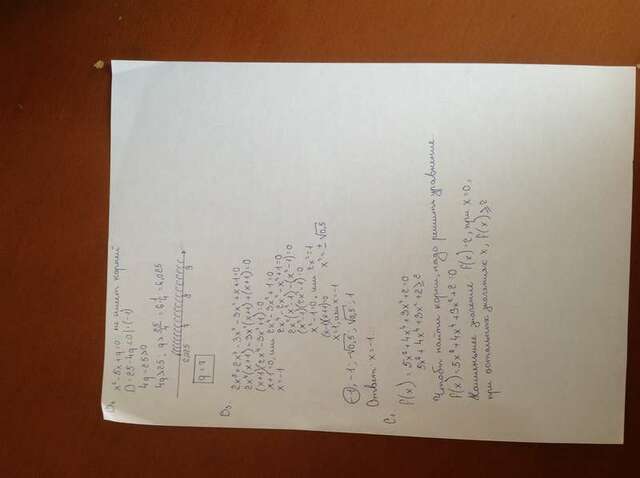 x² - 5x + q = 0 не имеет корней
D = 25 - 4q < 0 | · (-1)
4q - 25 > 0
4q > 25, q > 25/4 = 6 1/4 = 6,025
6,025 7 8 9
q = 7
B₃.
2x⁵ + 2x⁴ - 3x³ - 3x² + x + 1 = 0
2x⁴(x+1) - 3x²(x+1) + (x+1) = 0
(x+1)(2x⁴ - 3x² + 1) = 0
x + 1 = 0, или 2x⁴ - 3x² + 1 = 0
x = -1 2x⁴ - 2x² - x² + 1 = 0
2x²(x² - 1) - (x² - 1) = 0
(x² - 1)(2x² - 1) = 0
x² - 1 = 0, или 2x² = 1
(x-1)(x+1) = 0 x² = ± √0,5
x = 1, или x = -1
-1; -1; -√0,5; √0,5; 1
Ответ: x = -1
C₁.
f(x) = 5x⁸ + 4x⁴ + 3x² + 2 = 0
5x⁸ + 4x⁴ + 3x² + 2 ≥ 2
Чтобы найти корни, надо решить уравнение
f(x) = 5x⁸ + 4x⁴ + 3x² + 2 = 0
Наименьшее значение f(x) = 2, при x = 0,
при остальных значениях x, f(x) ≥ 2